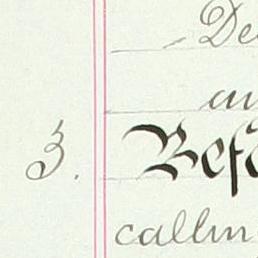 De
an
3. Befo
callin